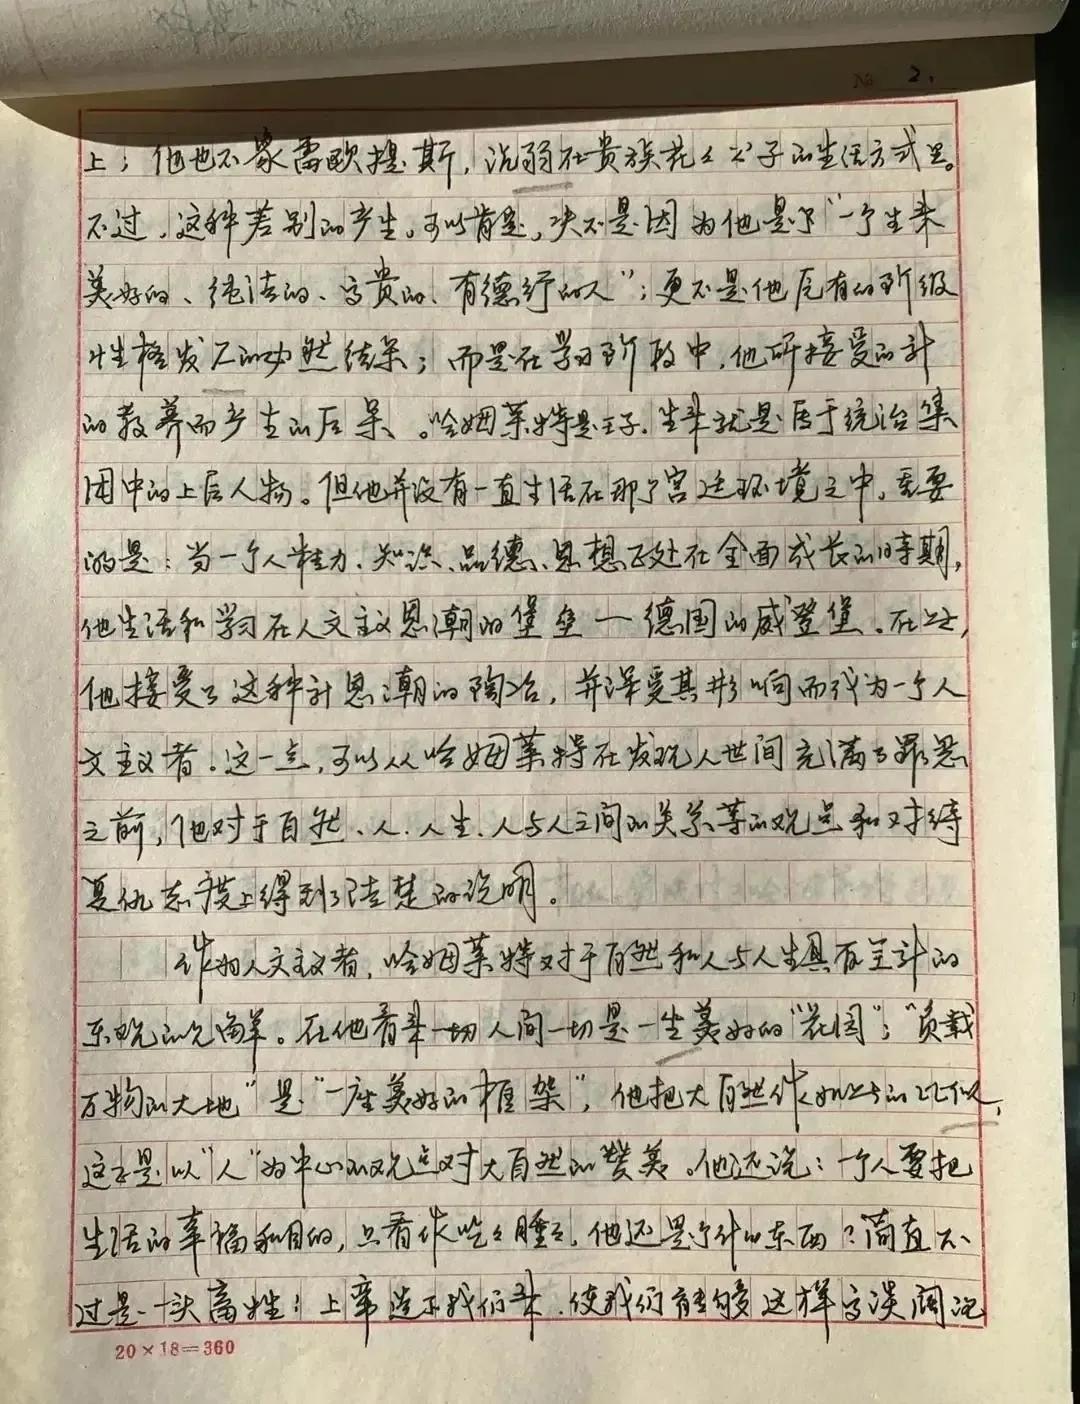 № 2.
上；他也不象雷欧提斯，沉弱在贵族花々公子的生活方式里。
不过，这种差别的产生。可以肯定，决不是因为他是个“一个生来
美好的、纯洁的、高贵的、有德行的人”；更不是他固有的阶级
性格发展的必然结果；而是在学习阶段中，他所接受的新
的教养而产生的后果。哈姆莱特是王子，生来就是居于统治集
团中的上层人物。但他并没有一直生活在那个宫廷环境之中，重要
的是：当一个人精力、知识、品德、思想正处在全面成长的时期，
他生活和学习在人文主义思潮的堡垒一德国的威登堡。在这，
他接受了这种新思潮的陶冶，并深受其影响而成为一个人
文主义者。这一点，可以从哈姆莱特在发现人世间充满了罪恶
之前，他对于自然、人、人生、人与人之间的关系等的观点和对待
复仇态度上得到了清楚的说明。
作为人文主义者，哈姆莱特对于自然和人与人生具有全新的
乐观的见解。在他看来一切人间一切是一座美好的“花园”；“负载
万物的大地”是“一座美好的框架”，他把大自然作如此的比似，
这正是以“人”为中心的观点对大自然的赞美。他还说：一个人要把
生活的幸福和目的，只看作吃々睡々，他还是个什么东西？简直不
过是一头畜牲！上帝造下我们来，使我们能够这样高谈阔论
20×18=360